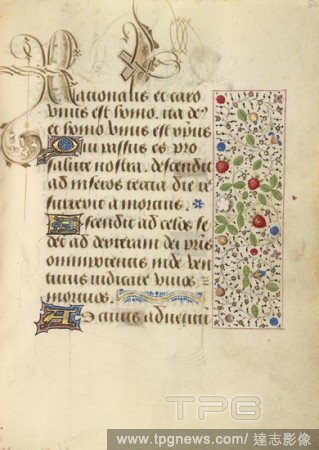 Rationalis et caro
vnus est homo. ita de9
et homo vnus est xp̄us
Qui passus es pro
salute nostra. descendit
ad inferos tercia die re
surrexit a mortuis.
Ascendit ad celos se
det ad dexteram dei pris
omnipotentis inde ven
turus iudicare viuos
mortuos.
Ad cuius aduentu
TPG
www.tpgnews.com/ 達志影像